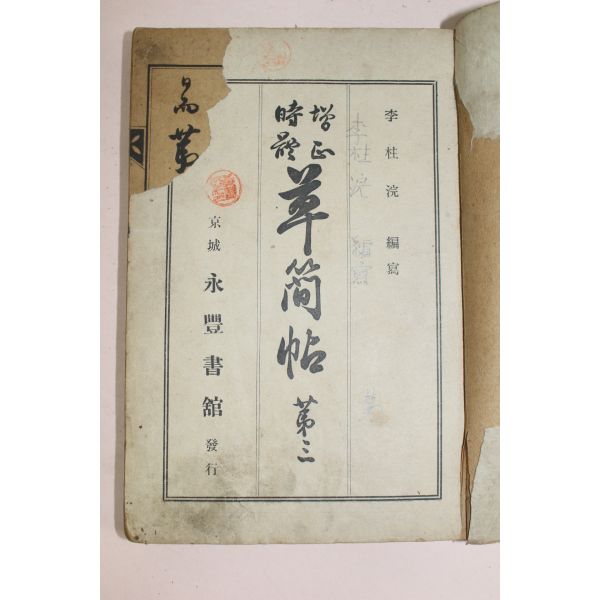 李柱浣 編寫
李柱浣 編寫
增正
時體
草簡帖 第三
京城 永豐書舘 發行